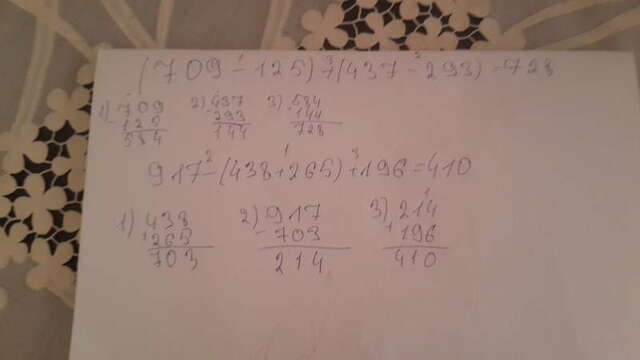 (709-125)+(437-293)=728
1) 709 2) 437 3) 584
125 293 144
584 144 728
917-(438+265)+196=410
1) 438 2) 917 3) 214
265 703 196
703 214 410